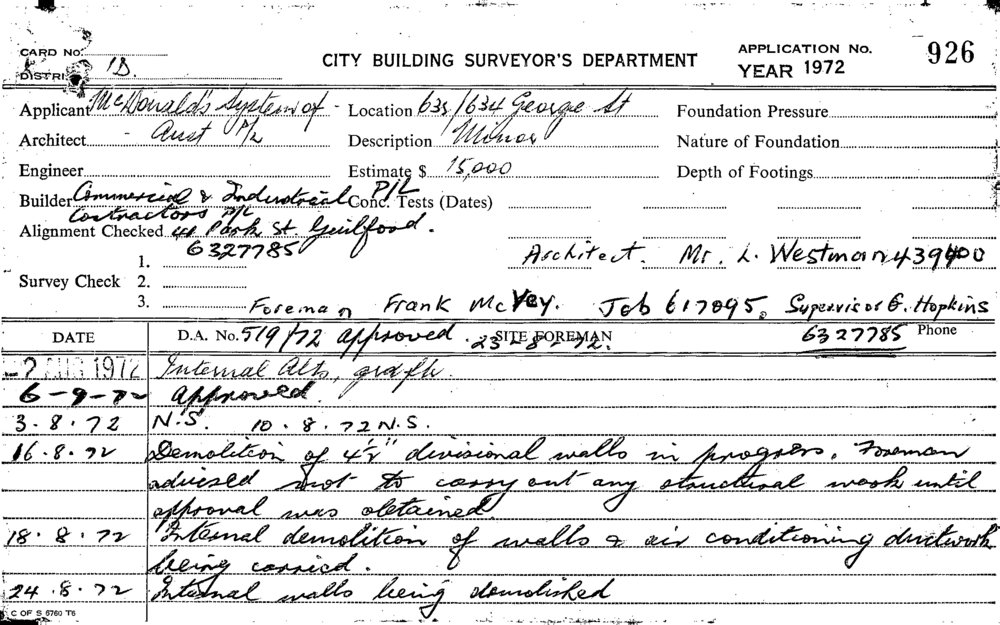 CARD No. CITY BUILDING SURVEYOR'S DEPARTMENT APPLICATION No. 926
DISTRI 1B. YEAR 1972
Applicant McDonald's System of Location 635/634 George St Foundation Pressure
Architect Aust P/L Description Minor Nature of Foundation
Engineer Estimate $ 15,000 Depth of Footings
Builder Commercial & Industrial P/L Conc. Tests (Dates)
Contractors P/L
Alignment Checked 41 Park St. Guilfood.
6327785 Architect. Mr. L. Westman 439400
1.
Survey Check 2.
3. Foreman Frank McVey. Job 617095. Supervisor G. Hopkins
DATE D.A. No. 519/72 approved. 23-8-72. SITE FOREMAN 6327785 Phone
-2 AUG 1972 Internal Alts, grd flr.
6-9-72 approved.
3.8.72 N.S. 10.8.72 N.S.
16.8.72 Demolition of 4½" divisional walls in progress. Foreman
advised not to carry out any structural work until
approval was obtained.
18.8.72 Internal demolition of walls & air conditioning ductwork
being carried.
24.8.72 Internal walls being demolished
C OF S 6760 T6